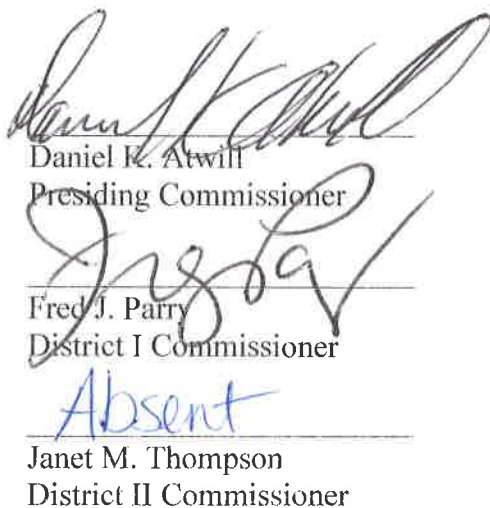 Daniel K. Atwill
Daniel K. Atwill
Presiding Commissioner
Fred J. Parry
District I Commissioner
Absent
Janet M. Thompson
District II Commissioner